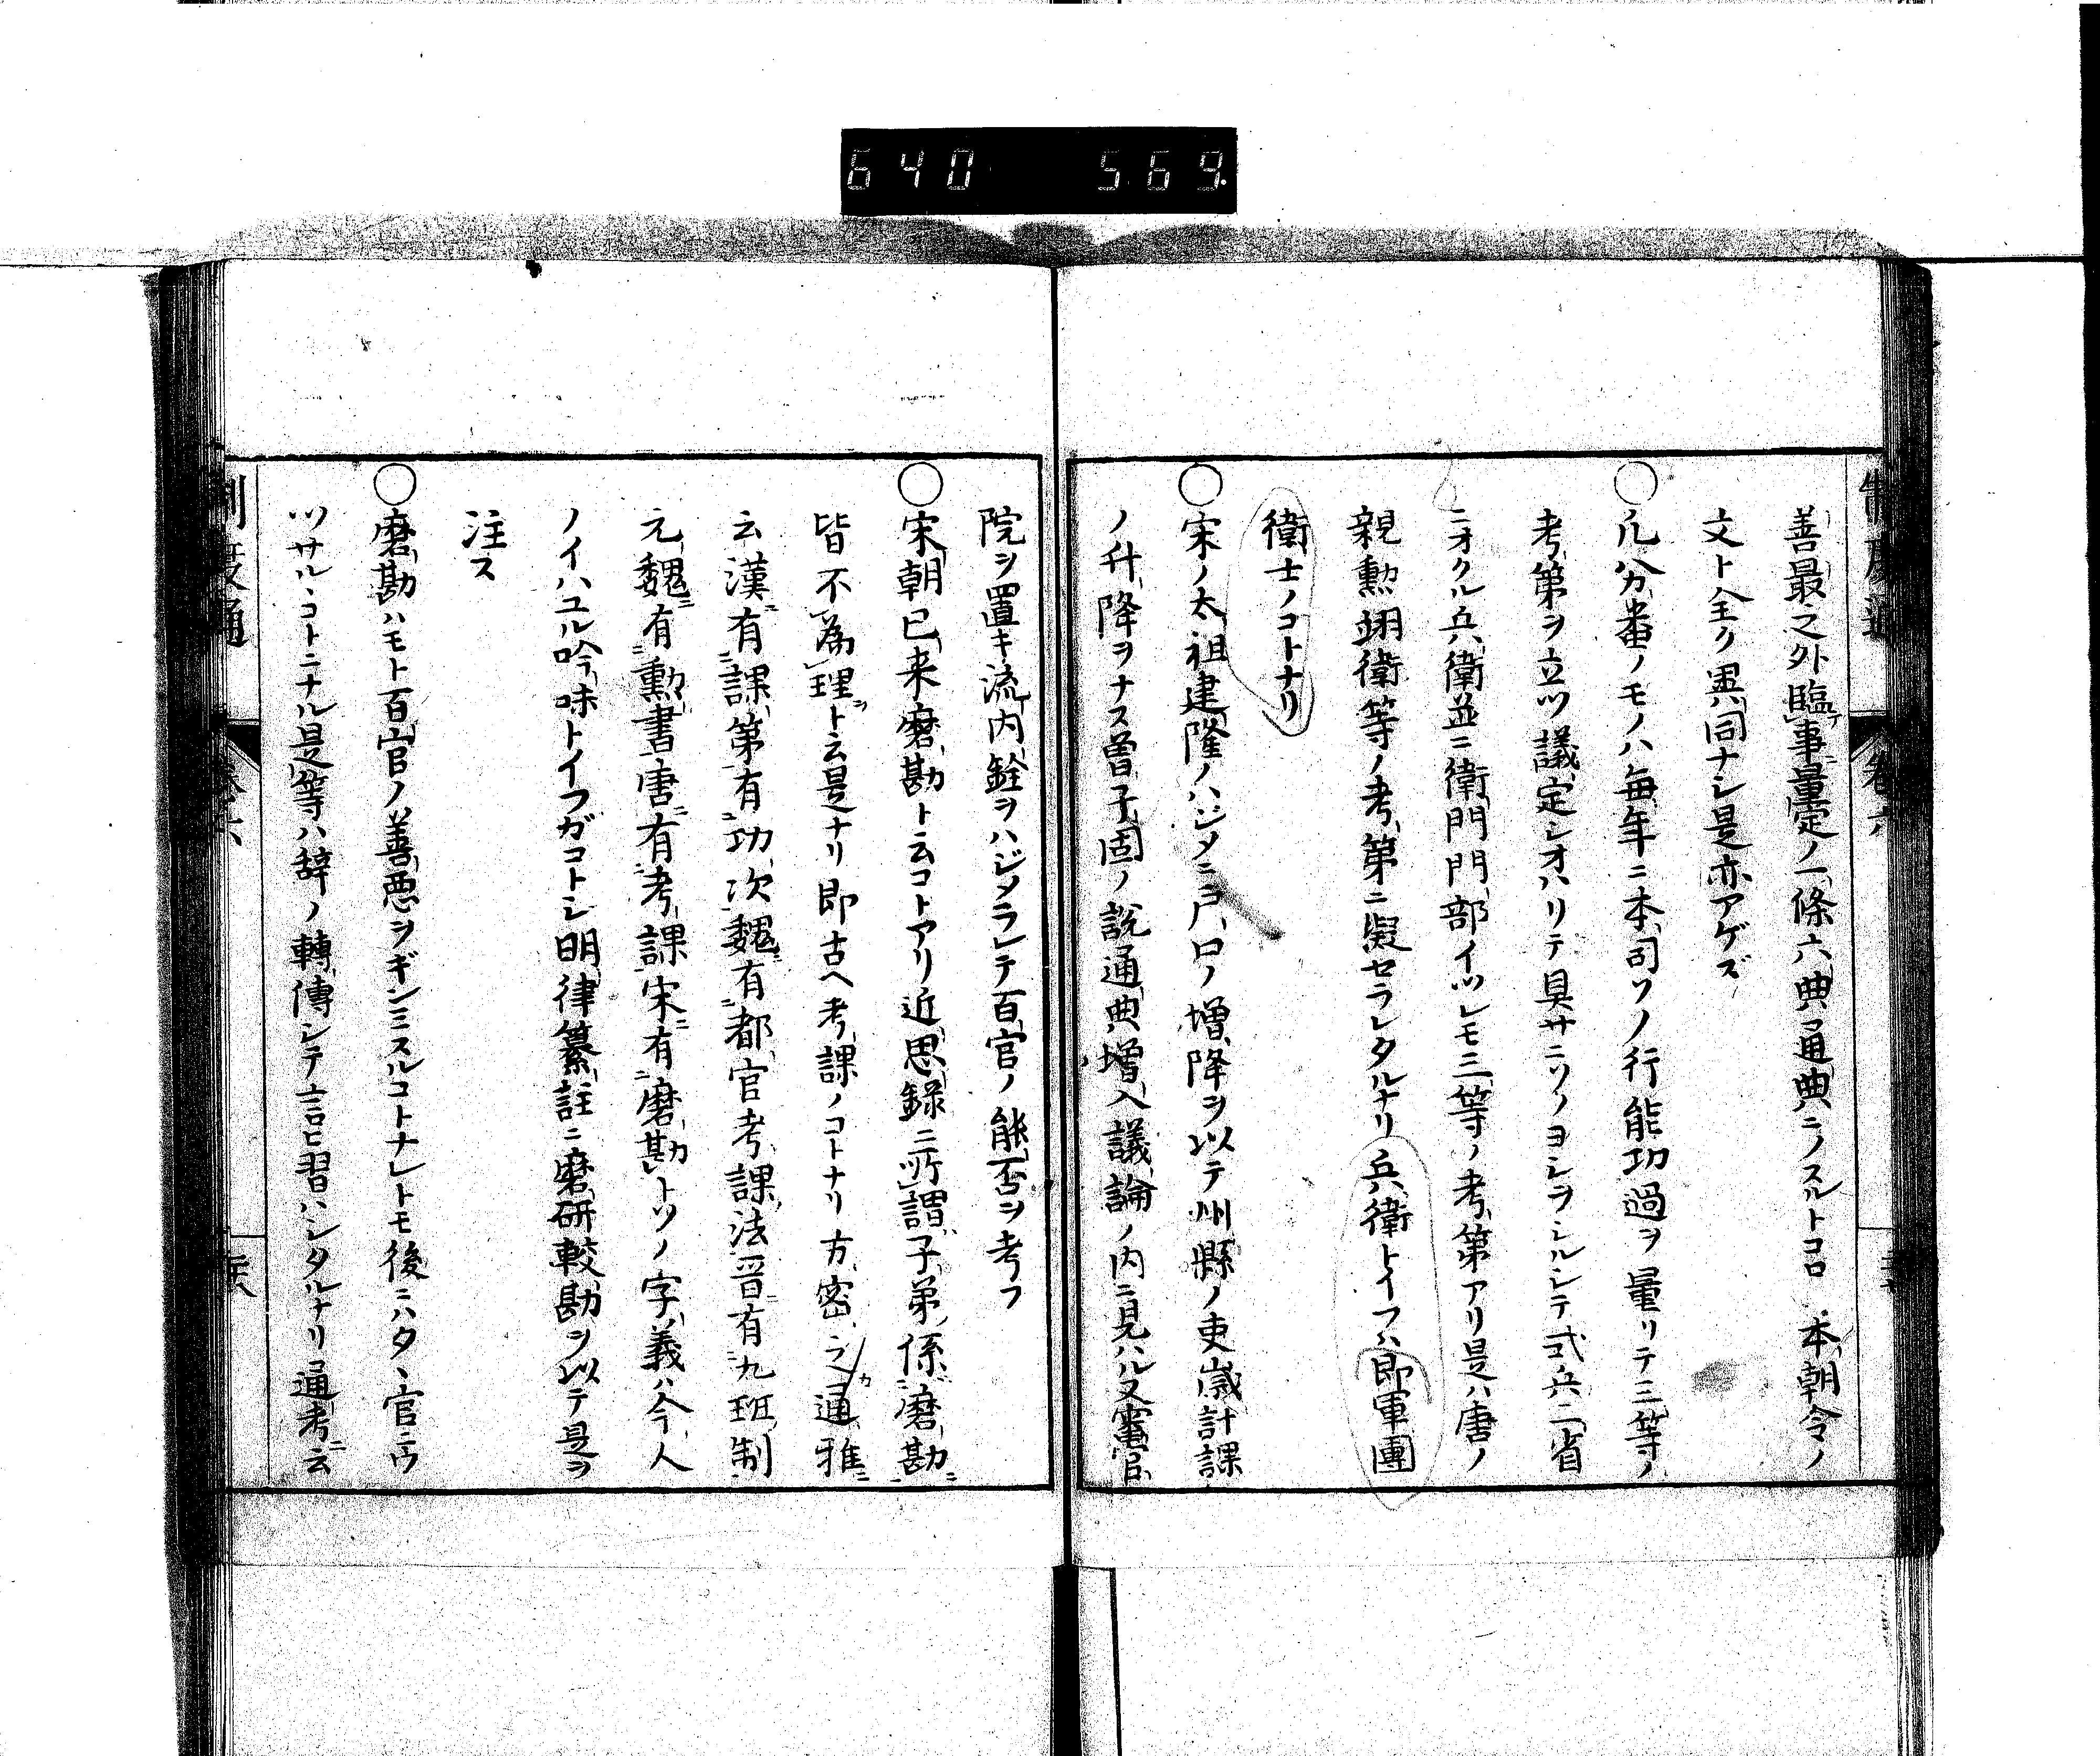 640 569.
制度通 卷六
善最之外臨事量定ノ一條六典通典ニノスルトコロ本朝令ノ
文ト全ク異同ナシ是亦アゲズ
○凡分番ノモノハ毎年ニ本司ソノ行能功過ヲ量リテ三等ノ
考第ヲ立ツ議定シオハリテ具サニソノヨシヲシルシテ式兵二省
ニオクル兵衛並ニ衛門門部イツレモ三等ノ考第アリ是ハ唐ノ
親勲翊衛等ノ考第ニ擬セラレタルナリ兵衛トイフハ即軍團
衛士ノコトナリ
○宋ノ太祖建隆ノハジメニ戸口ノ増降ヲ以テ州縣ノ吏歳計課
ノ升降ヲナス曽子固ノ説通典増入議論ノ内ニ見ハル又審官
院ヲ置キ流内銓ヲハジメラレテ百官ノ能否ヲ考フ
○宋朝已来磨勘ト云コトアリ近思録ニ所謂子弟係磨勘
皆不為理ト云是ナリ即古ヘ考課ノコトナリ方密之通雅
云漢有課第有功次魏有都官考課法晋有九班制
元魏有勲書唐有考課宋有磨勘トソノ字義ハ今人
ノイハユル吟味トイフガコトシ明律纂註ニ磨研較勘ヲ以テ是ヲ
注ス
○磨勘ハモト百官ノ善悪ヲギンミスルコトナレトモ後ニハタヽ官ニウ
ツサルヽコトニナル是等ハ辞ノ轉傳シテ言ヒ習ハシタルナリ通考云
制度通 卷六